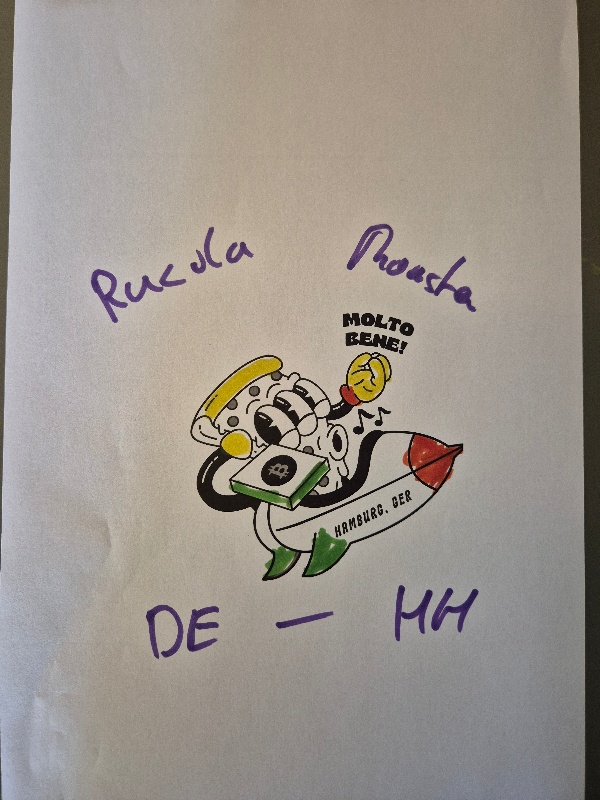 Rucola Monsta
MOLTO
BENE!
₿
HAMBURG. GER
DE — HH